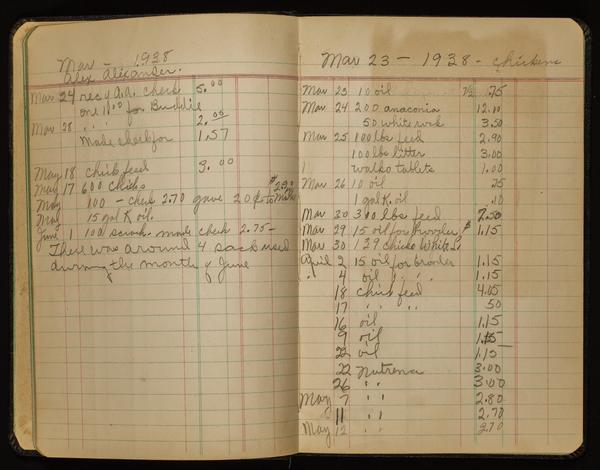 Mar - 1938
Alex Alexander.
Mar 24 rec'd a.a. check 5.00
one 11.00 for Buddie
Mar 28 " " 2.00
Made check for 1.57
May 18 chick feed 3.00
May 17 600 chicks
May 100 - check 2.70 gave 20¢ to
May 15 gal K oil.
June 1 100 scratch made check 2.75-
There was around 4 sacks used
during the month of June
Mar 23 - 1938 - chickens
Mar 23 10 oil 7½ .75
Mar 24 200 anaconia 12.10
50 white rock 3.50
Mar 25 100 lbs feed 2.90
100 lbs litter 3.00
1 walko tablets 1.00
Mar 26 10 oil 75
1 gal K. oil .10
Mar 30 300 lbs feed 7.50
Mar 29 15 oil for brooder $1.15
Mar 30 129 chicks White
April 2 15 oil for brooder 1.15
" 4 oil " " 1.15
18 chick feed 4.05
17 " " 50
16 oil 1.15
9 oil 1.15
22 oil 1.15
22 Nutrena 3.00
26 " " 3.00
May 7 " " 2.80
11 " " 2.70
May 12 " " 2.70